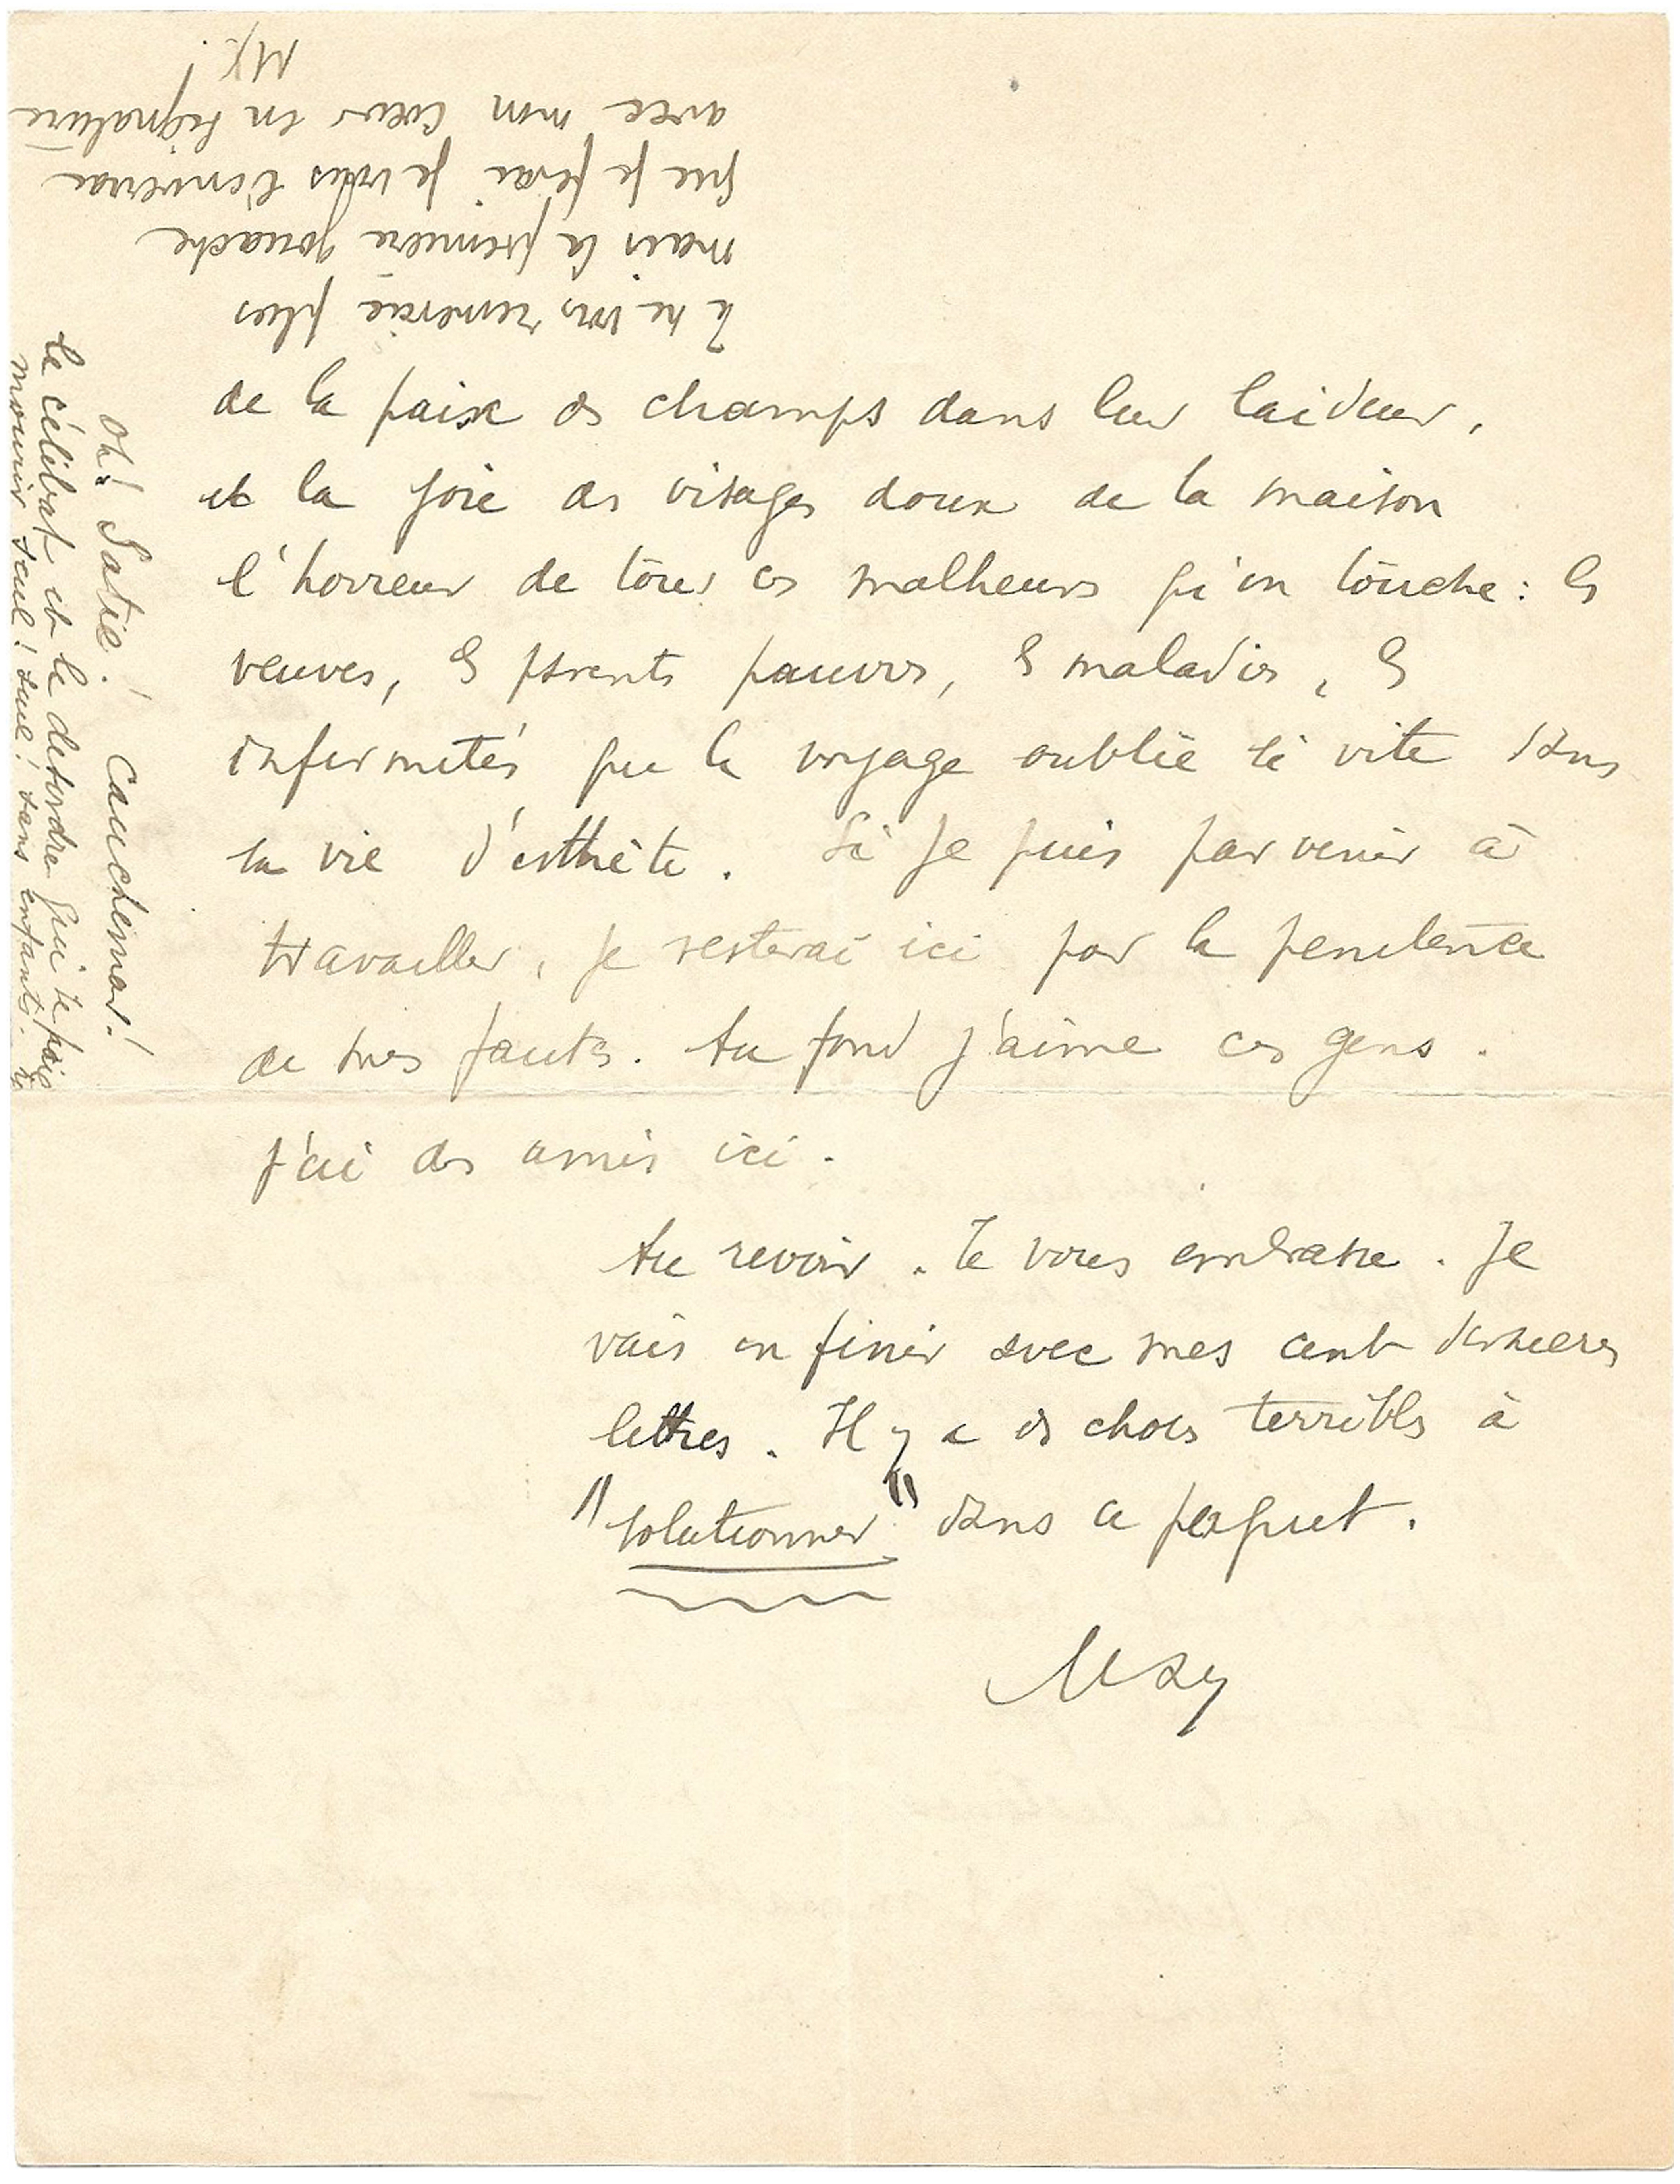 de la paix des champs dans leur laideur,
et la joie des visages doux de la maison
l'horreur de tous ces malheurs qu'on touche : les
veuves, les parents pauvres, les maladies, les
infirmités que le voyage oublie si vite dans
la vie d'esthète. Si je puis parvenir à
travailler, je resterai ici par la penitence
de mes fautes. Au fond j'aime ces gens.
j'ai des amis ici.
Au revoir. Je vous embrasse. Je
vais en finir avec mes cent dernieres
lettres. Il y a des choses terribles à
"solutionner" dans ce paquet.
Max
Oh! Satie! Cauchemar!
le célibat et le desordre qui te
mourir seul! seul! sans enfants.
Je ne vous remercie plus
mais la premiere gouache
que je ferai je vous l'enverrai
avec mon cœur en signature
MJ.